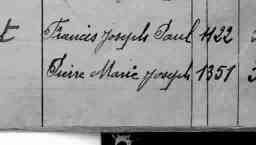 t Francis Joseph Paul 1422
Pierre Marie Joseph 1351